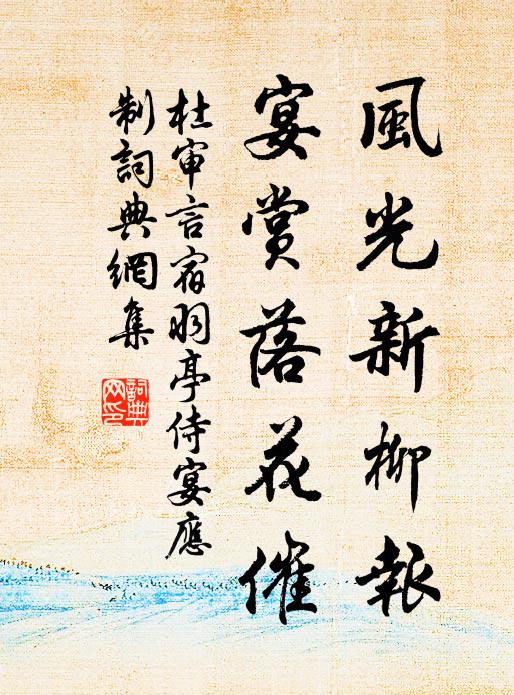 風光新柳報
宴賞落花催
杜审言宿羽亭侍宴應
制詞典網集
詞典
网印